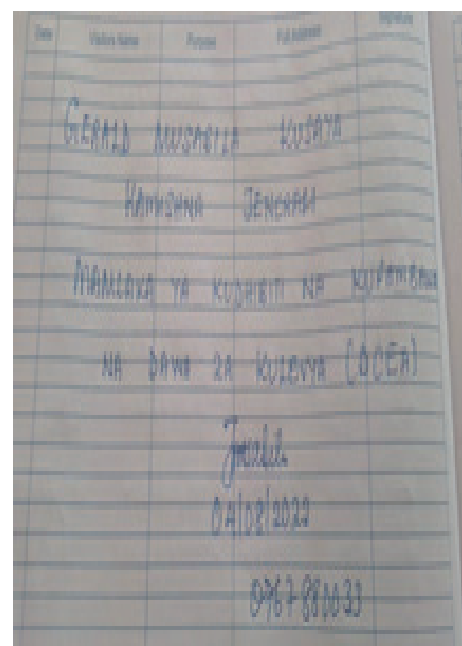 Date Visitors Name Purpose Full Address Signature
GERALD MUSABILA KUSAYA
KAMISHNA JENERALI
MAMLAKA YA KUDHIBITI NA KUPAMBANA
NA DAWA ZA KULEVYA (DCEA)
04/08/2022